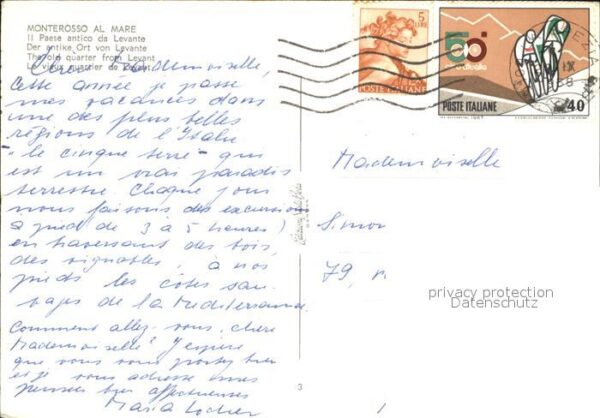 MONTEROSSO AL MARE
Il Paese antico da Levante
Der antike Ort von Levante
The old quarter from Levant
Le vieux quartier de Levant
Chère Mademoiselle,
cette année je passe
mes vacances dans
une des plus belles
régions de l'Italie
"le cinque terre" qui
est un vrai paradis
terrestre. Chaque jour
nous faisons des excursions
à pied de 3 à 5 heures!
en traversant des bois,
des vignobles, à nos
pieds les côtes sau-
vages de la Méditerranée
Comment allez-vous, chère
Mademoiselle? J'espère
que vous vous portez bien
et je vous adresse mes
pensées bien affectueuses
Maria
5
LIRE
POSTE ITALIANE
50
POSTE ITALIANE
40
1967
Mademoiselle
Simon
79,
privacy protection
Datenschutz
3